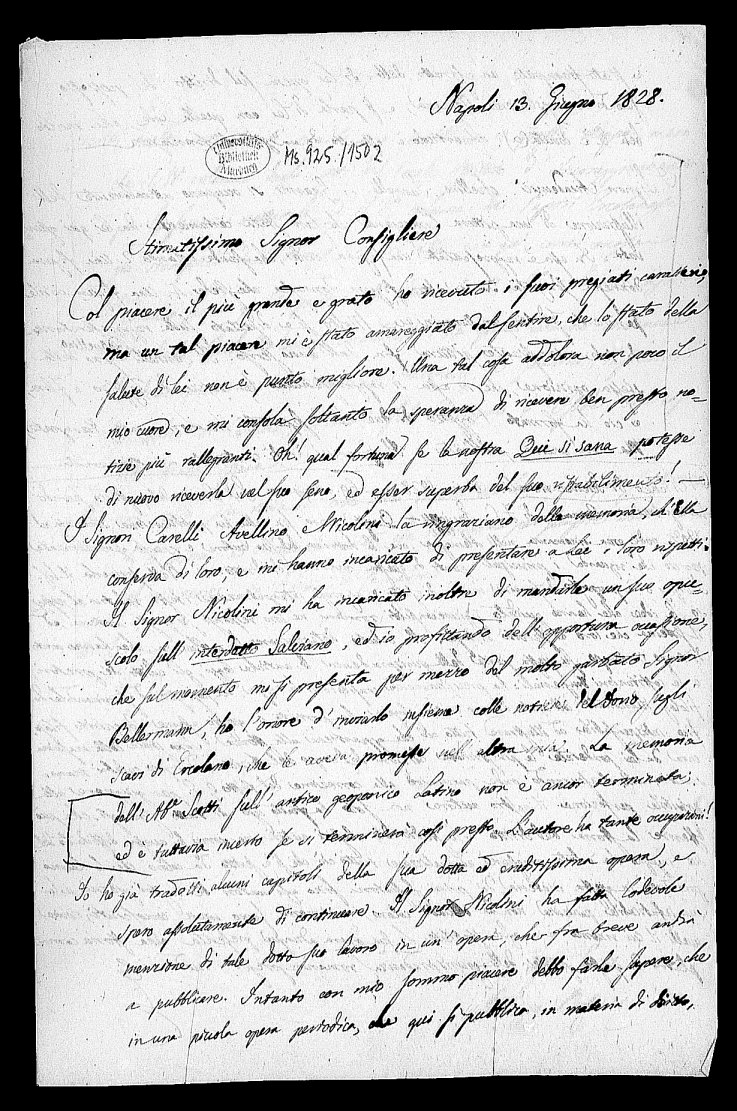 Napoli 13. Giugno 1828.
Universitäts
Bibliothek
Marburg
Ms. 925/1502
Stimatissimo Signor Consigliere
Col piacere il più grande e grato ho ricevuto i suoi pregiati caratteri,
ma un tal piacere mi è stato amareggiato dal sentire, che lo stato della
salute di lei non è punto migliore. Una tal cosa addolora non poco il
mio cuore, e mi consola soltanto la speranza di ricevere ben presto no=
tizie più rallegranti. Oh! qual fortuna se la nostra Qui si sana potesse
di nuovo riceverla nel suo seno, ed esser superba del suo ristabilimento! —
I Signori Carelli Avellino Nicolini la ringraziano della memoria, ch'ella
conserva di loro, e mi hanno incaricato di presentare a Lei i loro rispetti.
Il Signor Nicolini mi ha incaricato inoltre di mandarle un suo opu=
scolo sull' interdetto Salviano, ed io profittando dell' opportuna occasione,
che sul momento mi si presenta per mezzo del molto garbato Signor
Bellermann, ho l'onore d'inviarlo insieme colle notizie del sugli
scavi di Ercolano, che le aveva promesse nell' altra mia. La memoria
dell' Ab.e Scotti sull' antico geoponico Latino non è ancor terminata,
ed è tuttavia incerto se si terminerà così presto. L'autore ha tante occupazioni!
Io ho già tradotti alcuni capitoli della sua dotta ed eruditissima opera, e
spero assolutamente di continuare. Il Signor Nicolini ha fatta lodevole
menzione di tale dotto suo lavoro in un' opera, che fra breve andrà
a pubblicare. Intanto con mio sommo piacere debbo farle sapere, che
in una piccola opera periodica, che qui si pubblica, in materia di diritto,